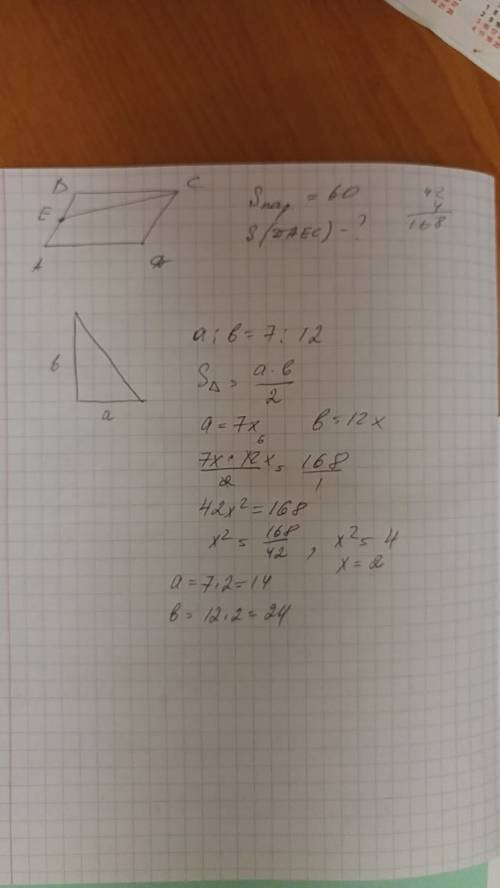 B C
E
A
Sпар = 60
S(DAEC) - ?
42
4
168
a : b = 7 : 12
b
a
S△ = a · b / 2
a = 7x b = 12x
6
7x · 12x / 2 = 168 / 1
42x² = 168
x² = 168 / 42 , x² = 4
x = 2
a = 7 · 2 = 14
b = 12 · 2 = 24